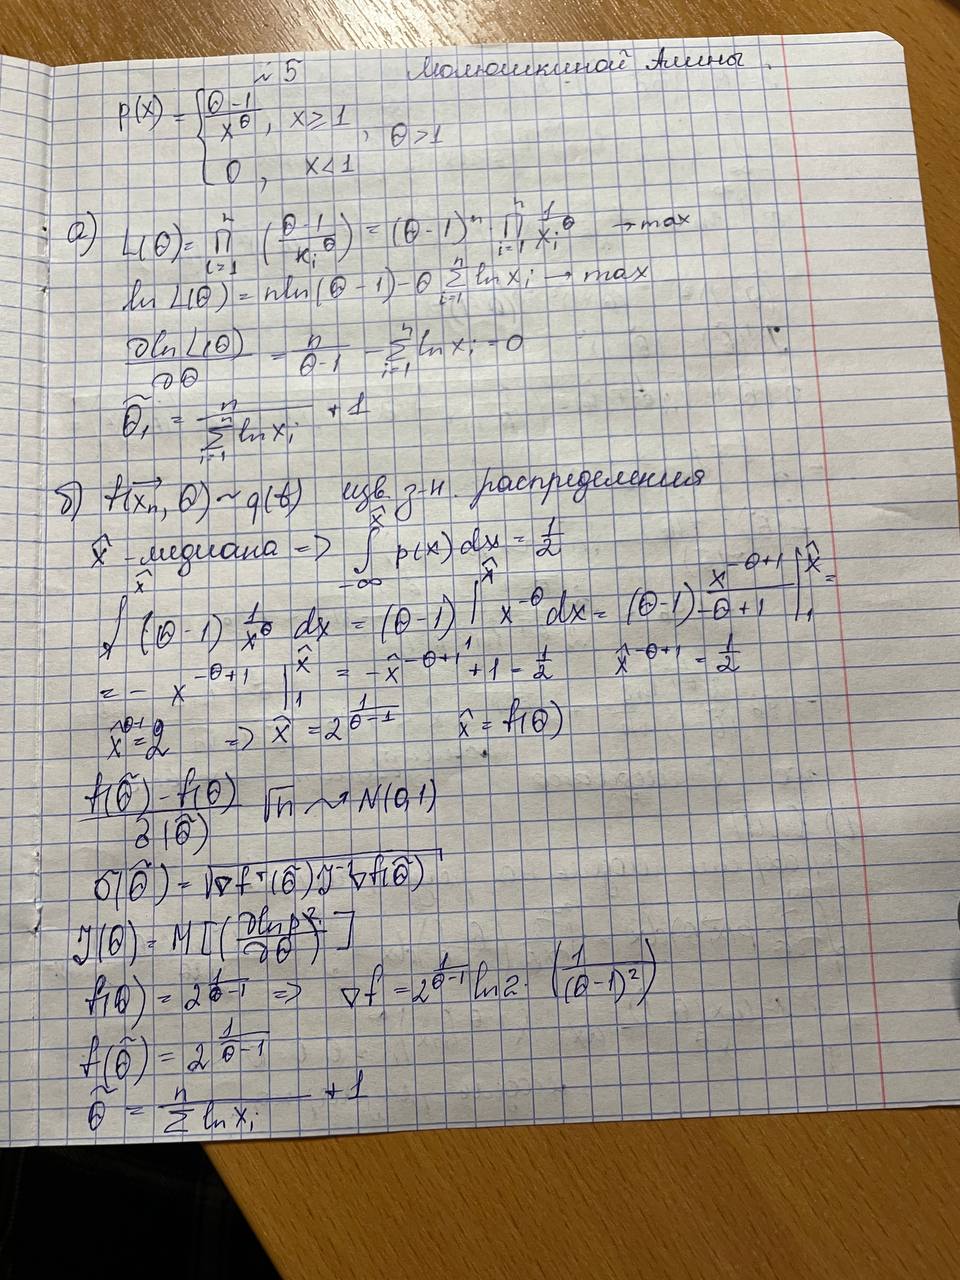 №5 Малюшкиной Алины
p(x) = { (θ-1)/x^θ, x≥1
0, x<1 , θ>1
а) L(θ) = ∏_{i=1}^{n} ((θ-1)/x_i^θ) = (θ-1)^n ∏_{i=1}^{n} 1/x_i^θ → max
ln L(θ) = n ln(θ-1) - θ ∑_{i=1}^{n} ln x_i → max
∂ln L(θ)/∂θ = n/(θ-1) - ∑_{i=1}^{n} ln x_i = 0
θ̃_1 = n/(∑_{i=1}^{n} ln x_i) + 1
б) f(x⃗_n, θ) ~ g(t) изв. з-н. распределения
x̂ - медиана => ∫_{-∞}^{x̂} p(x) dx = 1/2
∫_1^{x̂} (θ-1) 1/x^θ dx = (θ-1) ∫_1^{x̂} x^{-θ} dx = (θ-1) x^{-θ+1}/(-θ+1) |_1^{x̂} =
= - x^{-θ+1} |_1^{x̂} = -x̂^{-θ+1} + 1 = 1/2 x̂^{-θ+1} = 1/2
x̂^{θ-1} = 2 => x̂ = 2^{1/(θ-1)} x̂ = f(θ)
(f(θ̃) - f(θ))/σ(θ̃) √n ⇝ N(0,1)
σ(θ̃) = √(∇f^T(θ̃) I^{-1} ∇f(θ̃))
I(θ) = M[(∂ln p/∂θ)^2]
f(θ) = 2^{1/(θ-1)} => ∇f = 2^{1/(θ-1)} ln 2 · (1/(θ-1)^2)
f(θ̃) = 2^{1/(θ-1)}
θ̃ = n/(∑ ln x_i) + 1